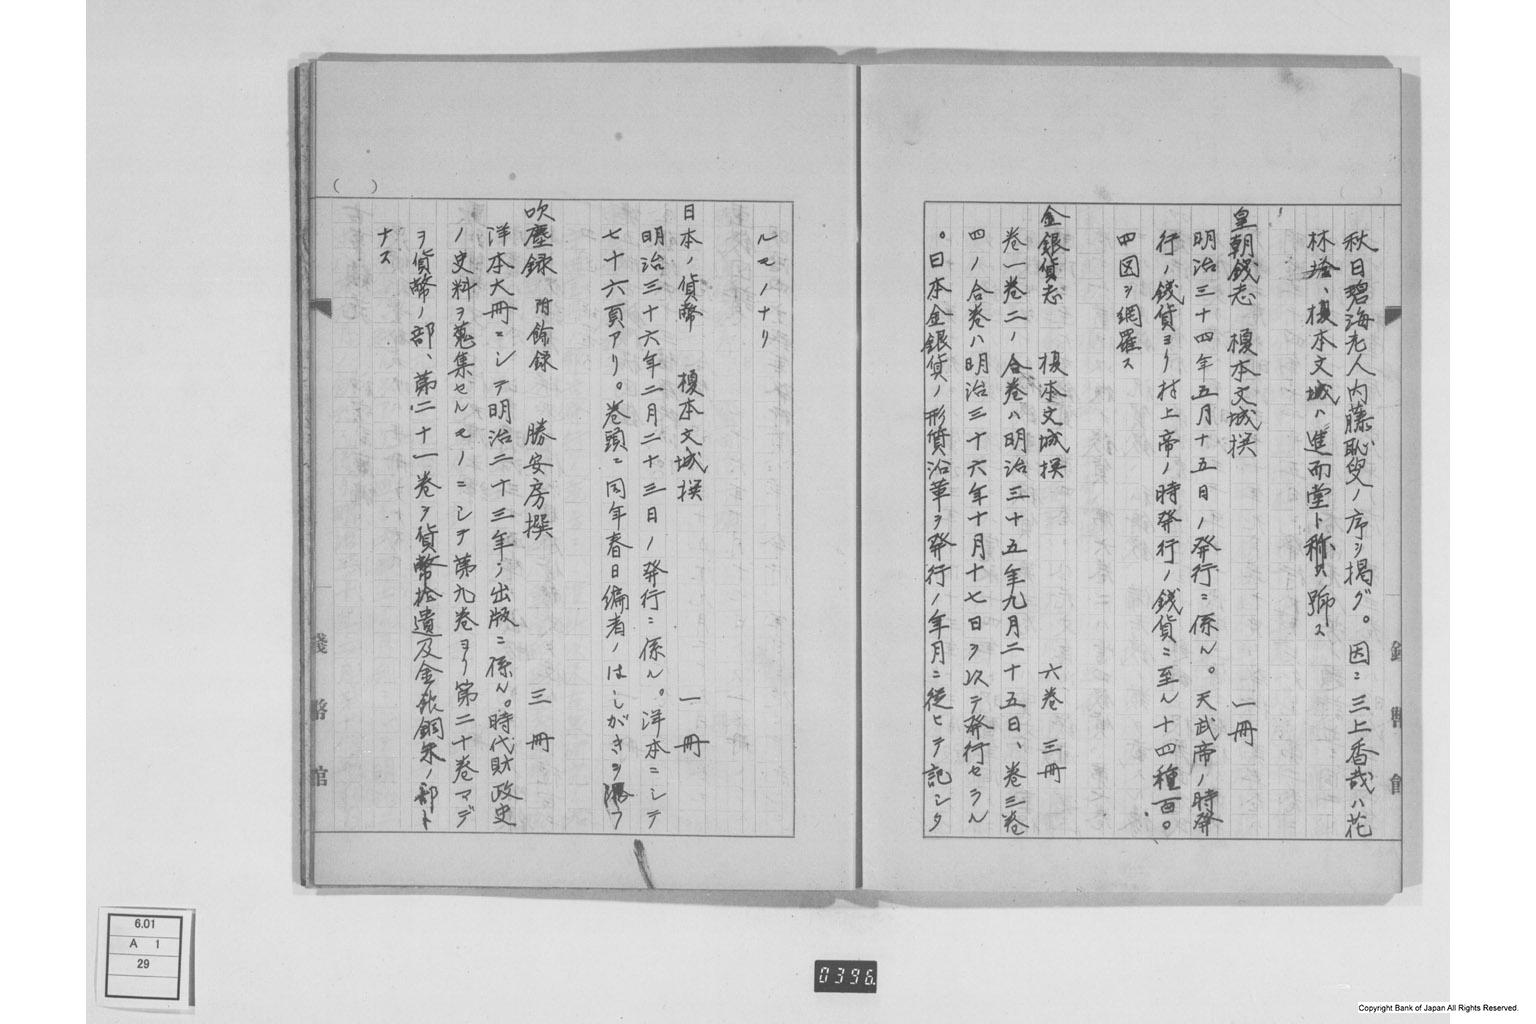 秋日碧海老人内藤恥叟ノ序ヲ掲グ。因ニ三上香哉ハ花
林塔、榎本文城ハ進而堂ト称号ス
皇朝銭志　榎本文城撰　一冊
明治三十四年五月十五日ノ発行ニ係ル。天武帝ノ時発
行ノ銭貨ヨリ村上帝ノ時発行ノ銭貨ニ至ル十四種百。
四図ヲ網羅ス
金銀貨志　榎本文城撰　六巻　三冊
巻一巻二ノ合巻ハ明治三十五年九月二十五日、巻三巻
四ノ合巻ハ明治三十六年十月十七日ヲ以テ発行セラル
。日本金銀貨ノ形質沿革ヲ発行ノ年月ニ従ヒテ記シタ
ルモノナリ
日本ノ貨幣　榎本文城撰　一冊
明治三十六年二月二十三日ノ発行ニ係ル。洋本ニシテ
七十六頁アリ。巻頭ニ同年春日編者ノはしがきヲ添フ
吹塵録　附餘録　勝安房撰　三冊
洋本大冊ニシテ明治二十三年ノ出版ニ係ル。時代財政史
ノ史料ヲ蒐集セルモノニシテ第九巻ヨリ第二十巻マデ
ヲ貨幣ノ部、第二十一巻ヲ貨幣拾遺及金銀銅米ノ部ト
ナス
(　)
銭幣館
6.01
A 1
29
0396.
Copyright Bank of Japan All Rights Reserved.